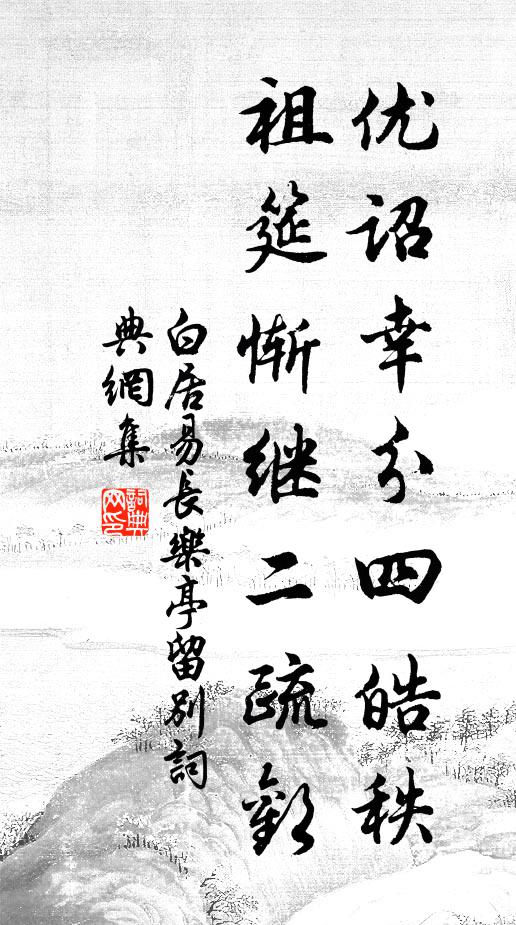 优诏幸分四皓秩
祖筵惭继二疏歡
白居易長樂亭留別詞
典網集
詞典网印